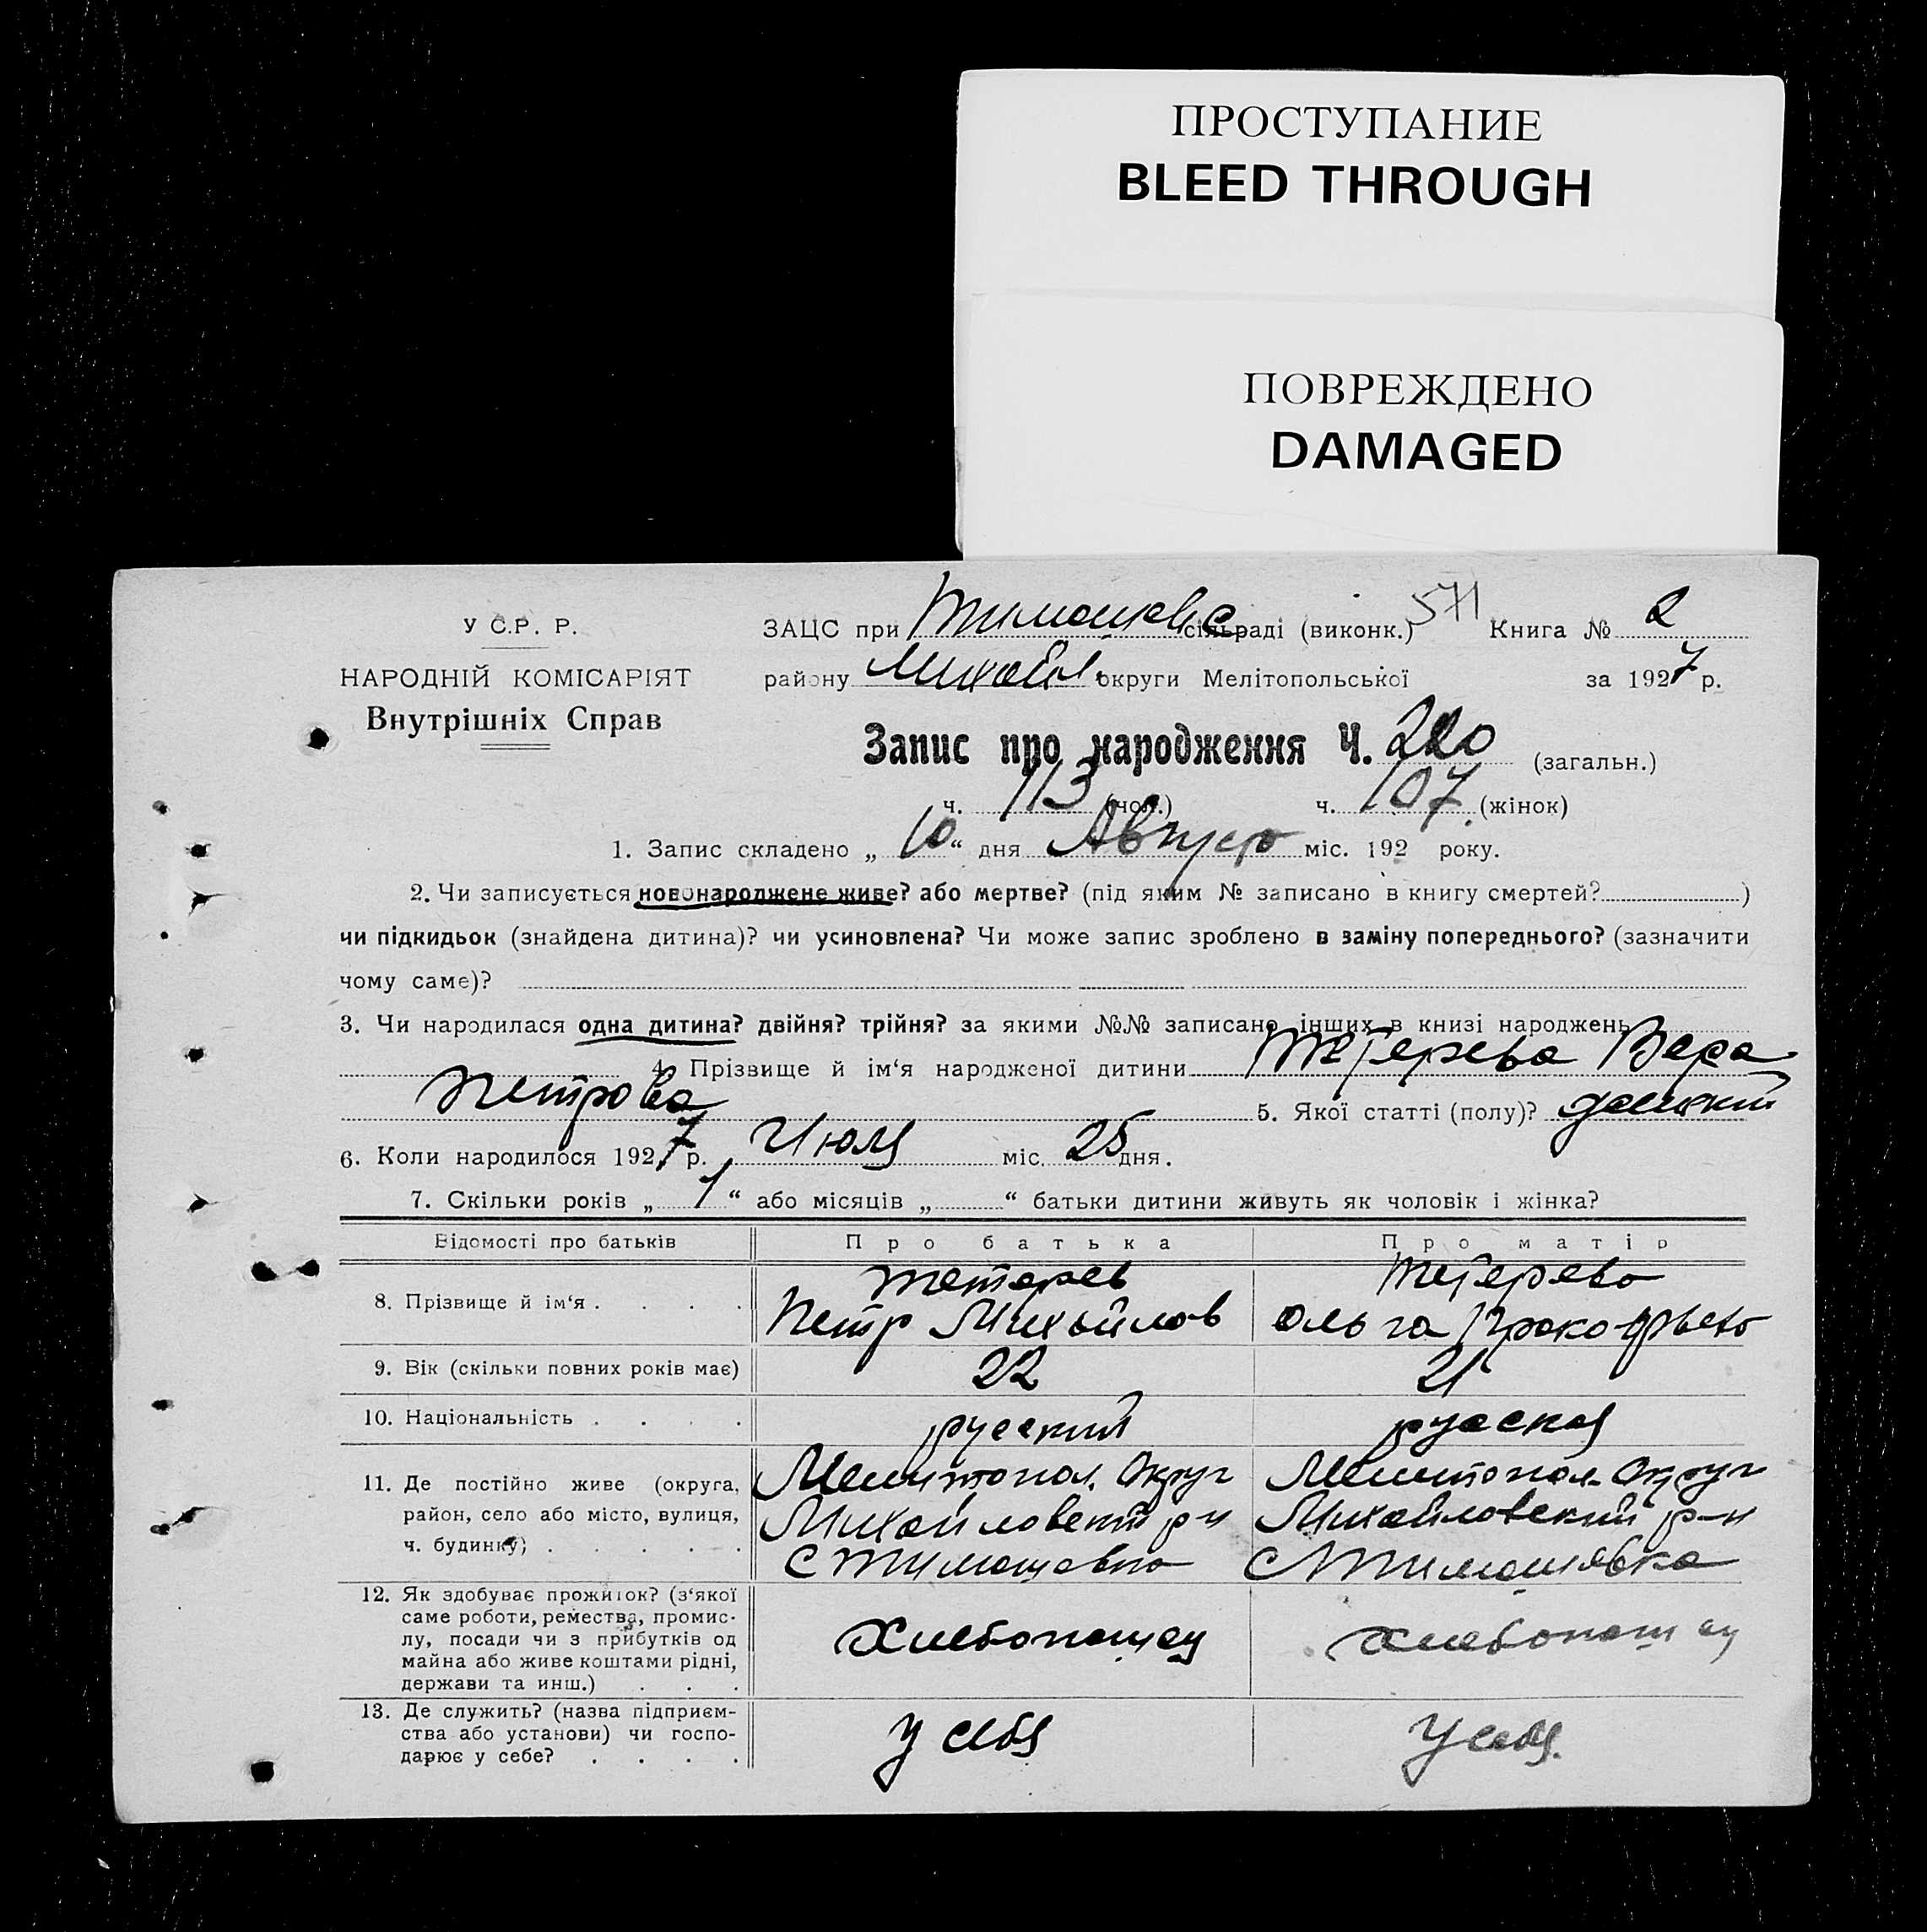 ПРОСТУПАНИЕ
BLEED THROUGH
ПОВРЕЖДЕНО
DAMAGED
У С.Р. Р.
НАРОДНІЙ КОМІСАРІЯТ
Внутрішніх Справ
ЗАЦС при Тимошевс сільраді (виконк.) 571 Книга № 2
району Михайл. округи Мелітопольської за 1927 р.
Запис про народження Ч. 220 (загальн.)
ч. 113 (чол.) ч. 107 (жінок)
1. Запис складено „ 10 “ дня Августа міс. 192 року.
2. Чи записується новонароджене живе? або мертве? (під яким № записано в книгу смертей? )
чи підкидьок (знайдена дитина)? чи усиновлена? Чи може запис зроблено в заміну попереднього? (зазначити
чому саме)?
3. Чи народилася одна дитина? двійня? трійня? за якими №№ записано інших в книзі народжень
4. Прізвище й ім‘я народженої дитини Тетерева Вера
Петрова 5. Якої статті (полу)?
6. Коли народилося 1927 р. Июля міс. 25 дня.
7. Скільки років „ 1 “ або місяців „ “ батьки дитини живуть як чоловік і жінка?
Відомості про батьків Про батька Про матір
8. Прізвище й ім‘я . . . . Тетерев Петр Михайлов Тетерева Ольга Прокофьева
9. Вік (скільки повних років має) 22 21
10. Національність . . . . русский русская
11. Де постійно живе (округа, Мелитопол. Округ Мелитопол. Округ
район, село або місто, вулиця, Михайловский р-н Михайловский р-н
ч. будинку) . . . . . С Тимошевка С Тимошевка
12. Як здобуває прожиток? (з‘якої
саме роботи, ремества, промис-
лу, посади чи з прибутків од Хлебопашец хлебопашец
майна або живе коштами рідні,
держави та инш.) . . .
13. Де служить? (назва підприєм-
ства або установи) чи госпо- У себя У себя.
дарює у себе? . . . .